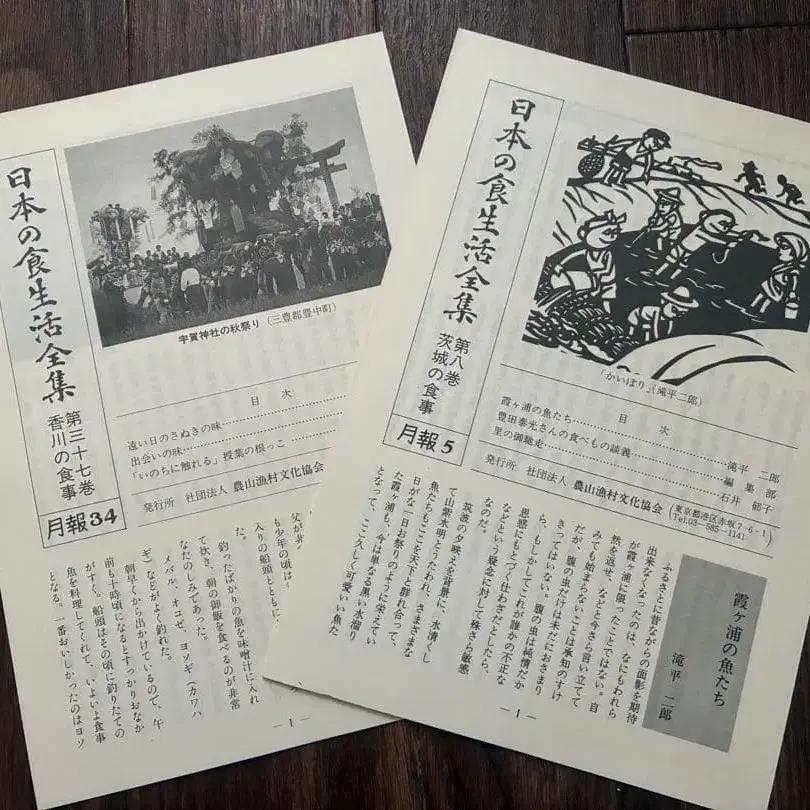 日本の食生活全集
第三十七巻
香川の食事
月報34
宇賀神社の秋祭り(三豊郡豊中町)
目 次
遠い日のさぬきの味
出会いの味
「いのちに触れる」授業の根っこ
発行所 社団法人 農山漁村文化協会
父が非
も少年の頃は
入りの船頭とともに
た。
釣ったばかりの魚を味噌汁に入れ
て炊き、朝の御飯を食べるのが非常
なたのしみであった。
メバル、オコゼ、ヨソギ(カワハ
ギ)などがよく釣れた。
朝早くから出かけているので、午
前も十時頃になるとすっかりおなか
がすく。船頭はその頃に釣りたての
魚を料理してくれて、いよいよ食事
となる。一番おいしかったのはヨソ
— 1 —
日本の食生活全集
第八巻
茨城の食事
月報5
「かいぼり」(滝平二郎)
目 次
霞ヶ浦の魚たち……滝平 二郎
豊田泰光さんの食べもの談義……編集部
里の御馳走……石井 郁子
発行所 社団法人 農山漁村文化協会
(東京都港区赤坂7-6-1
Tel.03-585-1141)
霞ヶ浦の魚たち
滝平 二郎
ふるさとに昔ながらの面影を期待
出来なくなったのは、なにもわれら
が霞ヶ浦に限ったことではない。自
然を返せ、などと今さら言い立てて
みても始まらないことは承知のすけ
だが、腹の虫だけは未だにおさまり
きってはいない。腹の虫は純情だか
ら、もしかしてこれが誰かの不正な
思惑にもとづく仕わざだとしたら、
などという疑念に対して殊さら敏感
なのだ。
筑波の夕映えを背景に、水清くし
て山紫水明とうたわれ、さまざまな
魚たちもここを天下と群れ合って、
日がな一日お祭りのように栄えてい
た霞ヶ浦も、今は単なる黒い水溜り
となって、ここ久しく可愛いい魚た
— 1 —